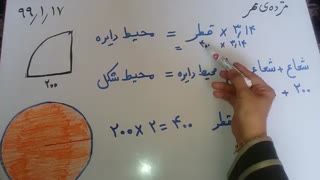 مژده‌ی مهر
۹۹,۱,۱۷
محیط دایره = قطر × ۳,۱۴
= ۴۰۰ × ۳,۱۴
۲۰۰
محیط شکل = محیط دایره شعاع + شعاع
+ ۲۰۰
۲۰۰ × ۲ = ۴۰۰ قطر